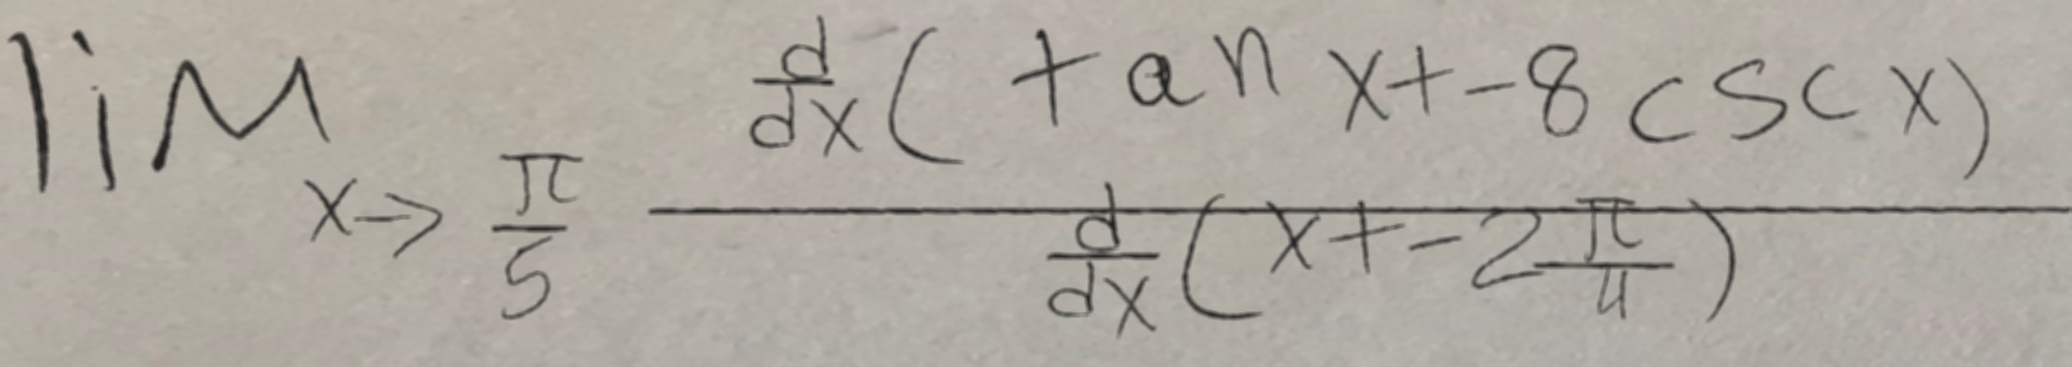 \lim_{x \to \frac{\pi}{5}} \frac{\frac{d}{dx}(\tan x + -8 \csc x)}{\frac{d}{dx}(x + -2\frac{\pi}{4})}